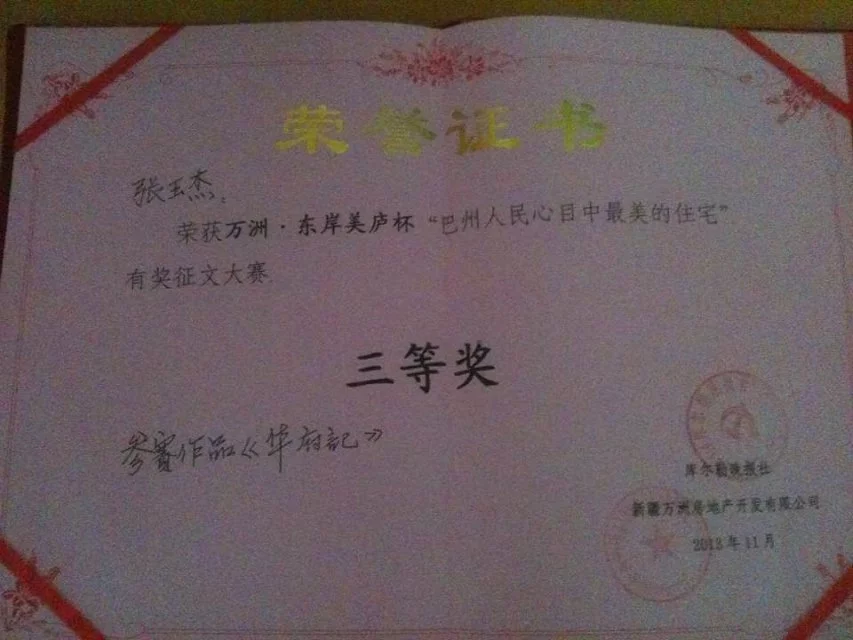 荣誉证书
张玉杰:
荣获万洲·东岸美庐杯“巴州人民心目中最美的住宅”
有奖征文大赛
三等奖
参赛作品《华府記》
库尔勒晚报社
新疆万洲房地产开发有限公司
2013年11月